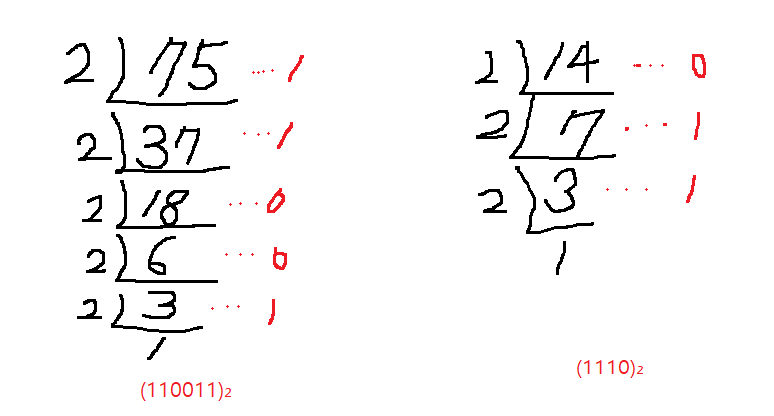 2 ) 75 ... 1
2 ) 37 ... 1
2 ) 18 ... 0
2 ) 6 ... 0
2 ) 3 ... 1
1
(110011)₂
2 ) 14 ... 0
2 ) 7 ... 1
2 ) 3 ... 1
1
(1110)₂